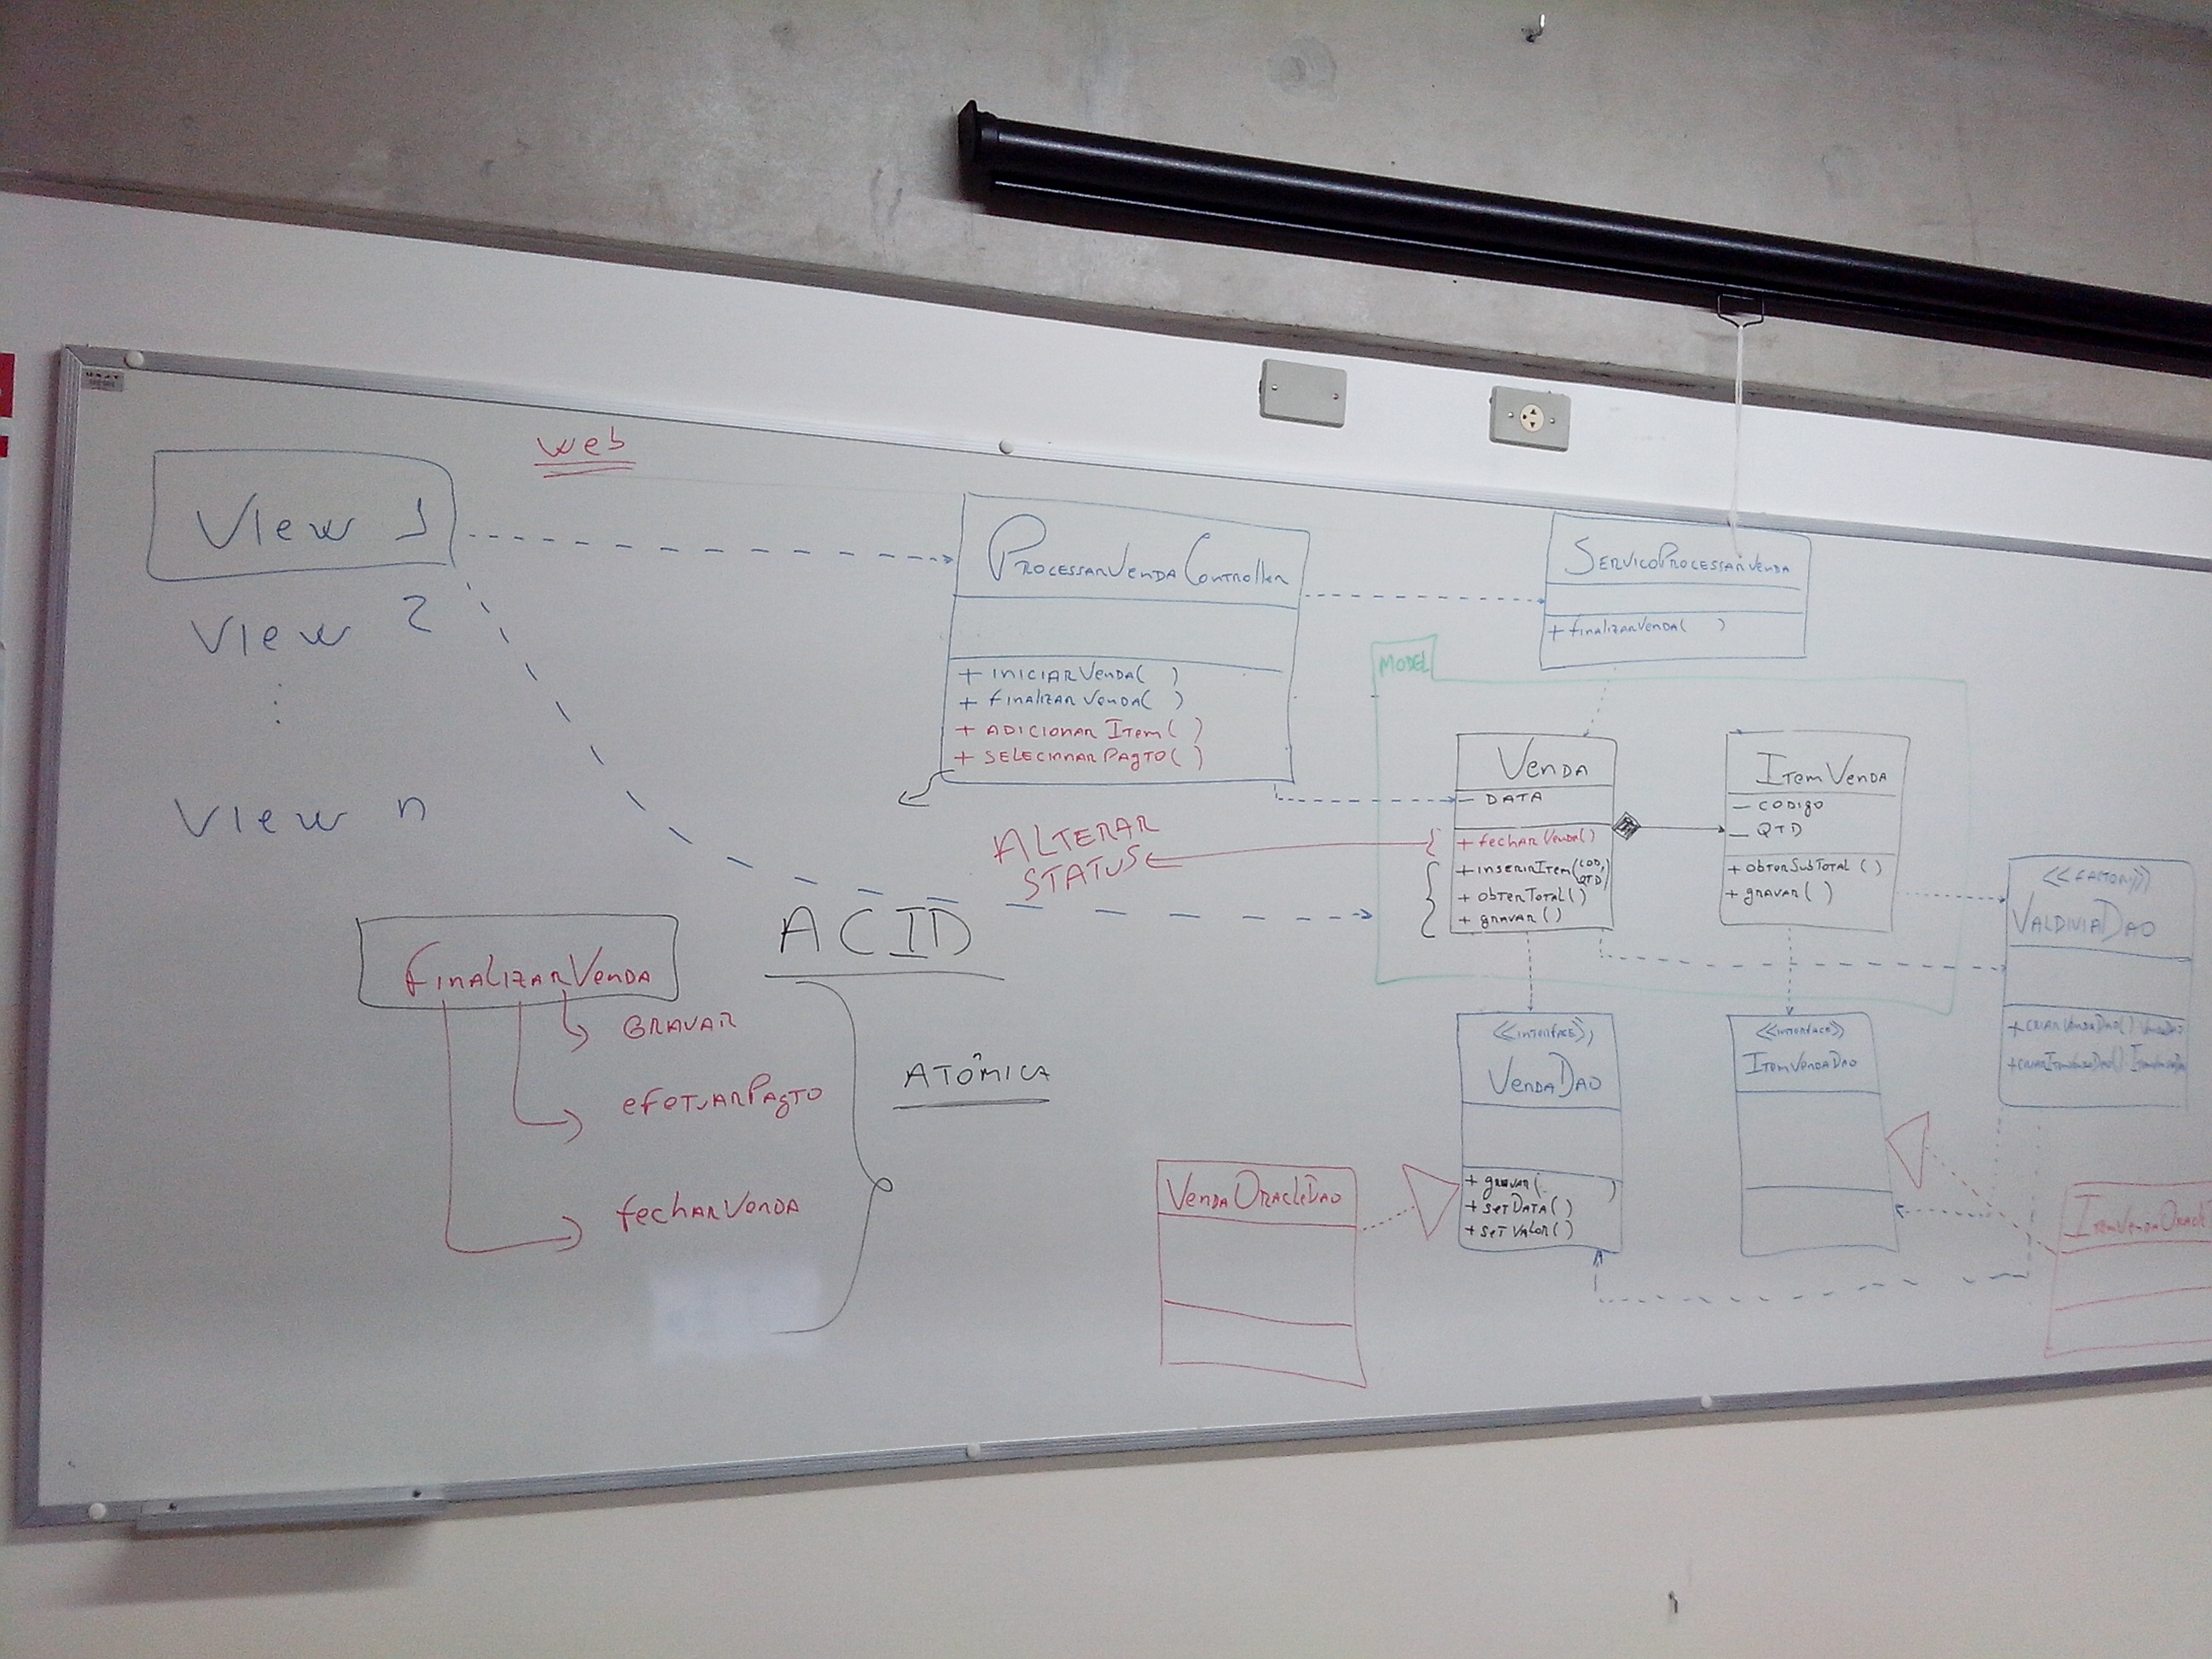 web
View 1
View 2
View n
ProcessarVendaController
+ iniciarVenda( )
+ finalizarVenda( )
+ adicionarItem( )
+ selecionarPagto( )
ServicoProcessarVenda
+ finalizarVenda( )
MODEL
Venda
- DATA
+ fecharVenda()
+ inserirItem(COD, QTD)
+ obterTotal()
+ gravar()
ItemVenda
- CODIGO
- QTD
+ obterSubTotal()
+ gravar()
ALTERAR
STATUS
ACID
ATÔMICA
FinalizarVenda
GRAVAR
efetuarPagto
fecharVenda
<<FACTORY>>
ValdiviaDao
<<interface>>
VendaDao
+ gravar( )
+ setData()
+ setValor()
<<interface>>
ItemVendaDao
VendaOracleDao